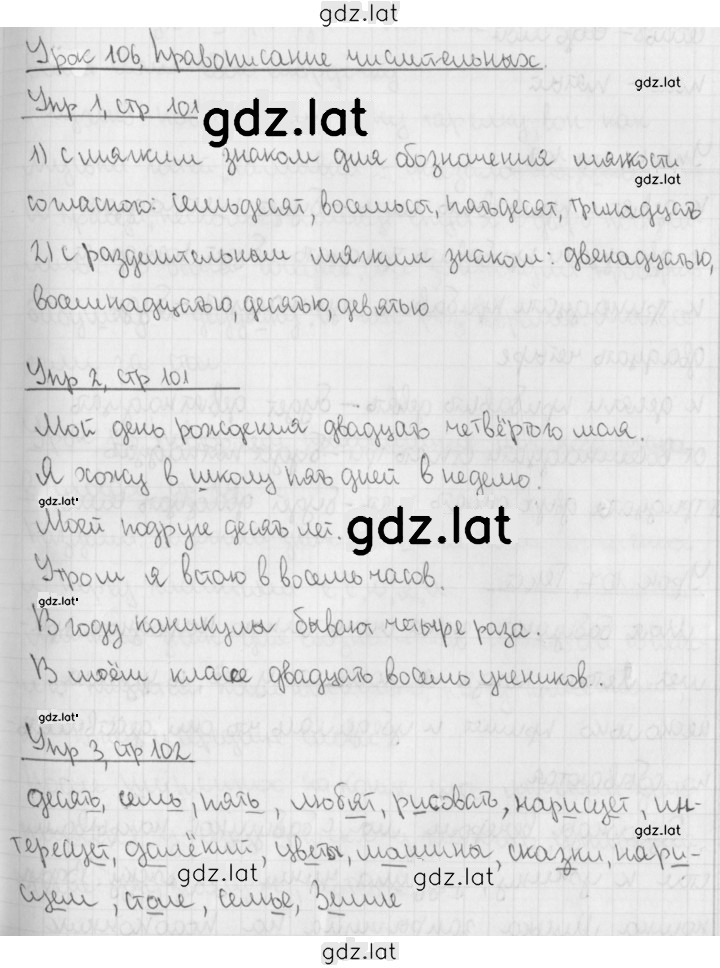 gdz.lat
Урок 106, Правописание числительных.
gdz.lat
Упр 1, стр 101
gdz.lat
1) с мягким знаком для обозначения мягкости
gdz.lat
согласного: семьдесят, восемьсот, пятьдесят, тринадцать
2) с разделительным мягким знаком: двенадцатью,
восемнадцатью, десятью, девятью
Упр 2, стр 101
Мой день рождения двадцать четвёртого мая.
Я хожу в школу пять дней в неделю.
gdz.lat
Моей подруге десять лет.
gdz.lat
Утром я встаю в восемь часов.
gdz.lat
В году каникулы бывают четыре раза.
В моём классе двадцать восемь учеников.
gdz.lat
Упр 3, стр 102
десять, семь, пять, любят, рисовать, нарисует, ин-
gdz.lat
тересует, далёкий, цветы, машины, сказки, нари-
gdz.lat
gdz.lat
суем, столе, семье, Земле
gdz.lat